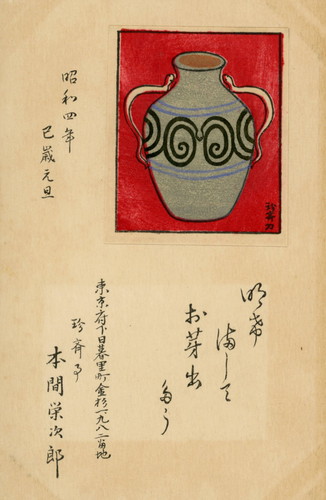 珍斉刀
昭和四年
巳歳元旦
明希
満して
お芽出
多う
東京府下日暮里町金杉一九八二番地
珍斉事
本間栄次郎